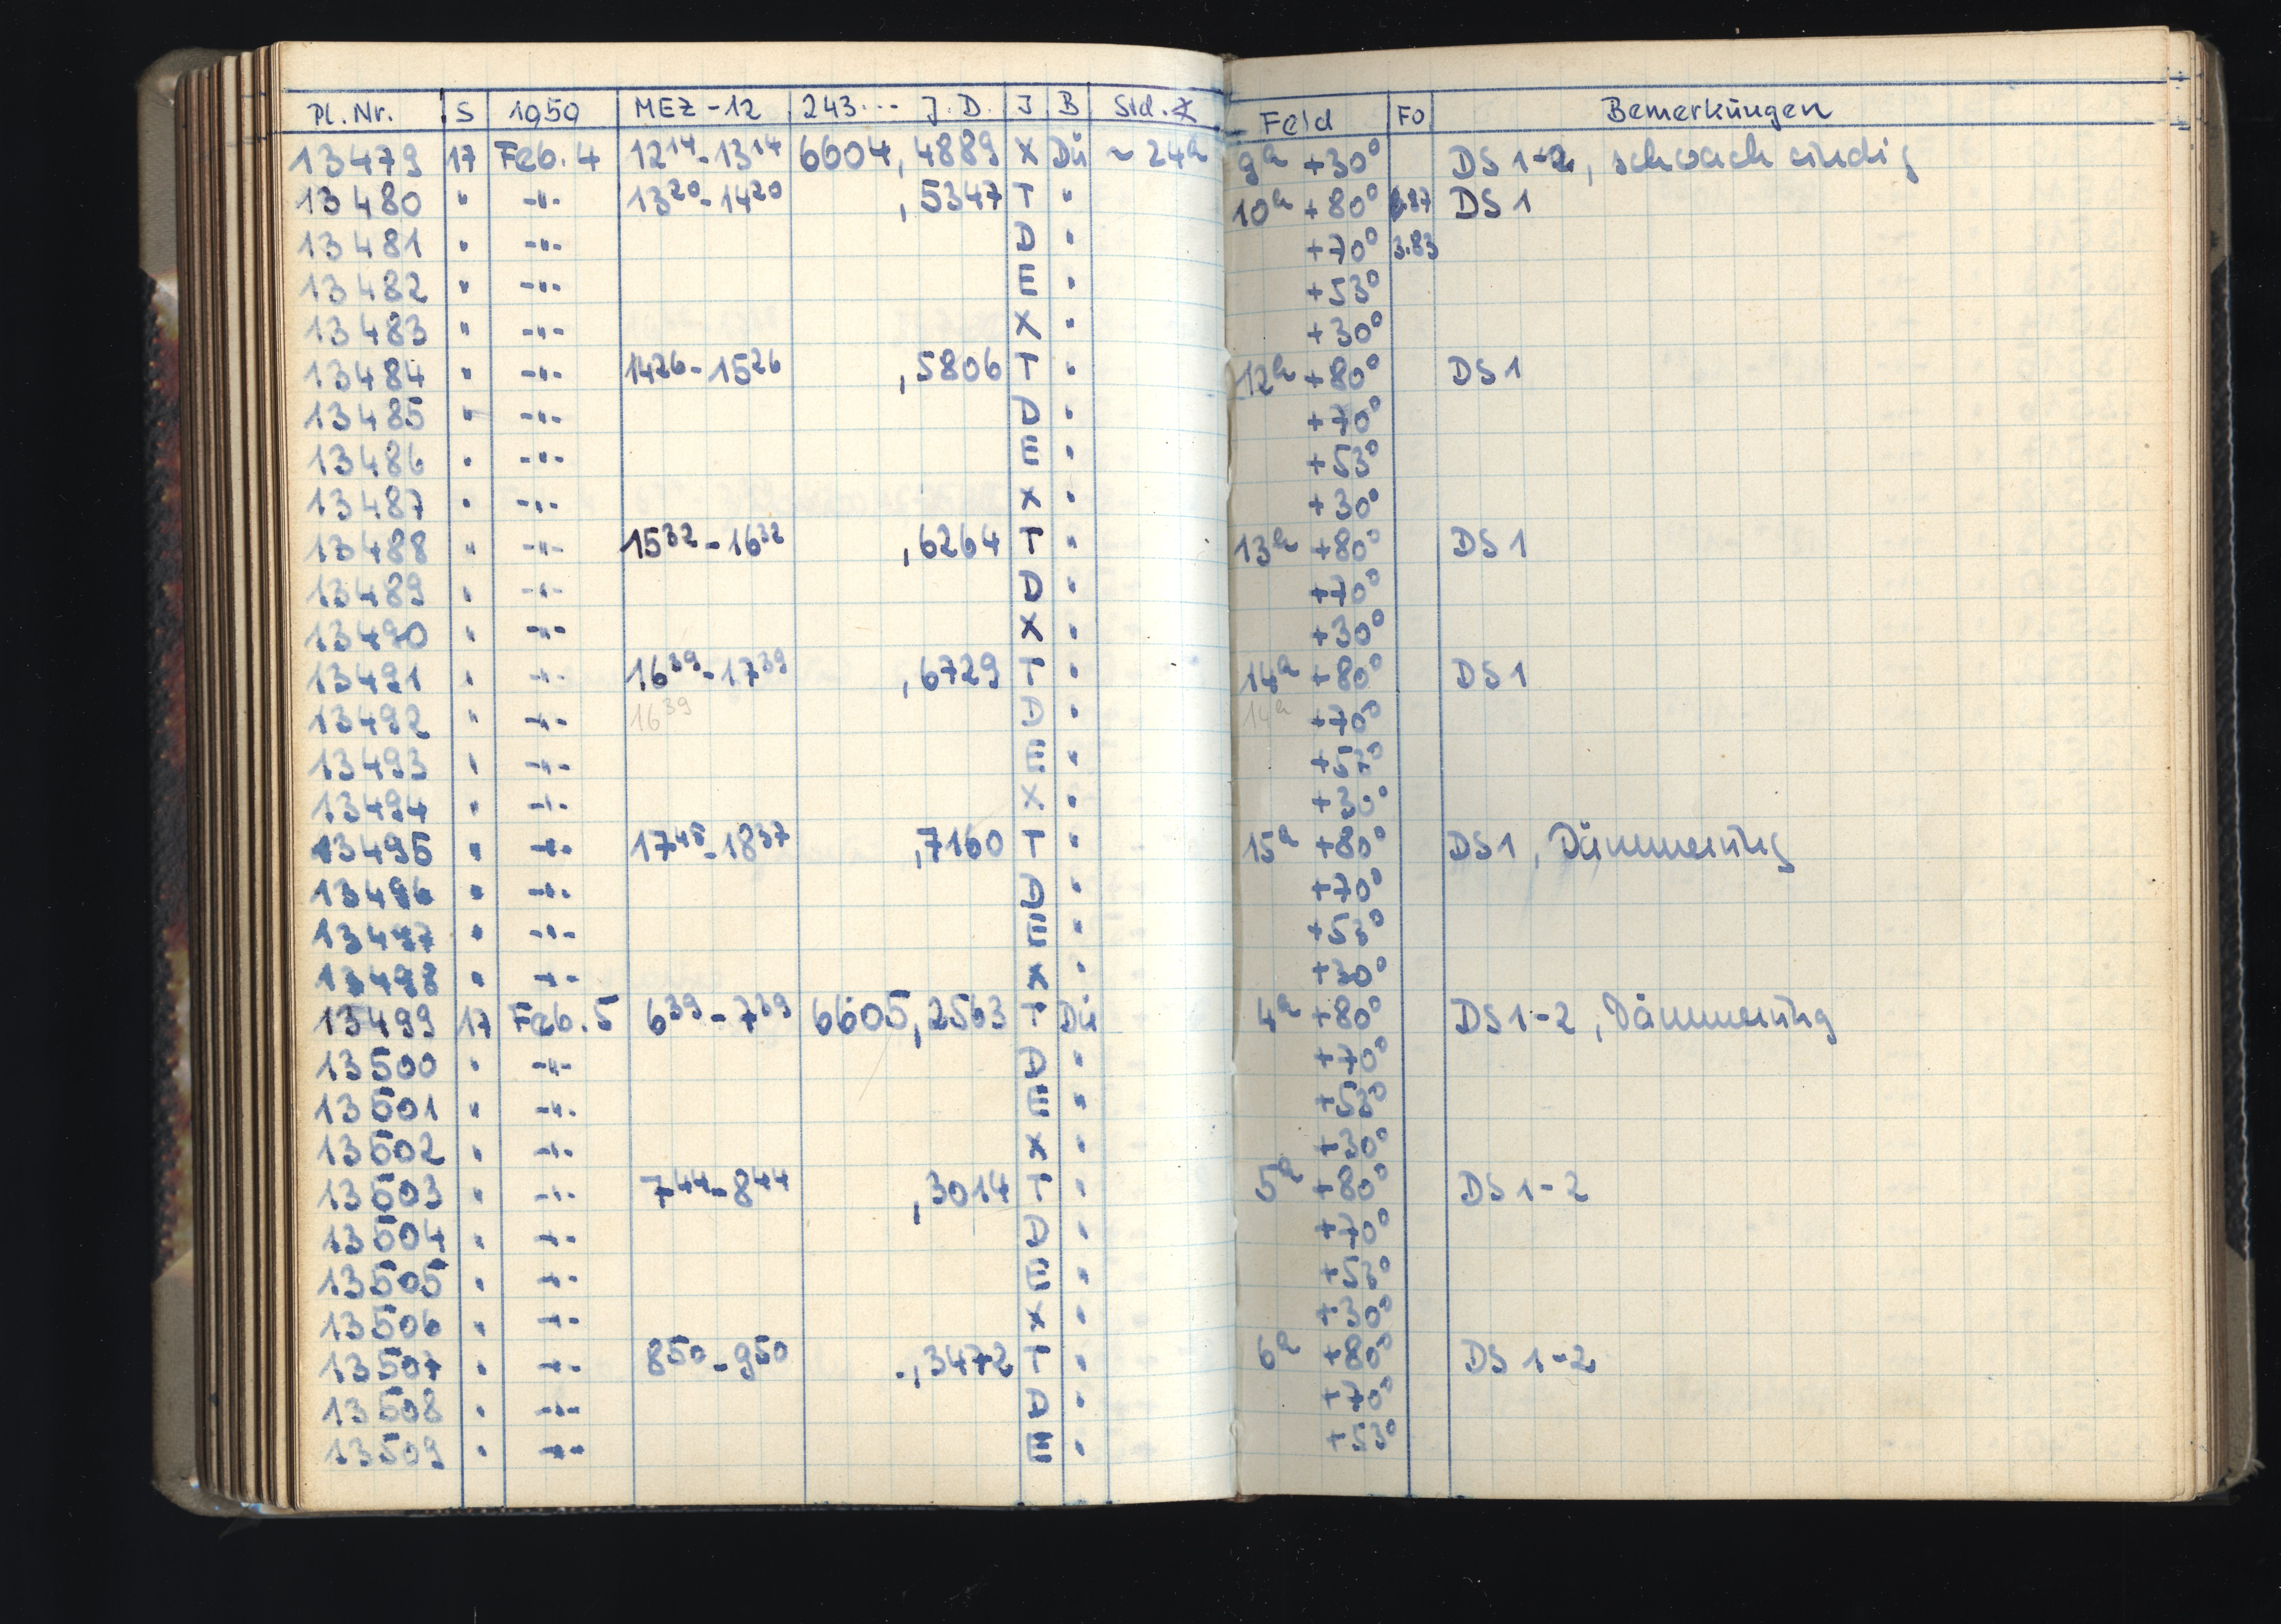 Pl. Nr. S 1959 MEZ -12 243... J. D. J B Std. ∡ Feld FO Bemerkungen
13479 17 Feb. 4 12¹⁴-13¹⁴ 6604,4889 X Dü ~24ʰ 9ʰ +30° DS 1-2, schwach windig
13480 " -"- 13²⁰-14²⁰ ,5347 T " 10ʰ +80° DS 1
13481 " -"- D " +70° 3.83
13482 " -"- E " +53°
13483 " -"- X " +30°
13484 " -"- 14²⁶-15²⁶ ,5806 T " 12ʰ +80° DS 1
13485 " -"- D " +70°
13486 " -"- E " +53°
13487 " -"- X " +30°
13488 " -"- 15³²-16³² ,6264 T " 13ʰ +80° DS 1
13489 " -"- D " +70°
13490 " -"- X " +30°
13491 " -"- 16³⁹-17³⁹ ,6729 T " 14ʰ +80° DS 1
13492 " -"- 16³⁹ D " 14ʰ +70°
13493 " -"- E " +53°
13494 " -"- X " +30°
13495 " -"- 17⁴⁵-18³⁷ ,7160 T " 15ʰ +80° DS 1, Dämmerung
13496 " -"- D " +70°
13497 " -"- E " +53°
13498 " -"- X " +30°
13499 17 Feb. 5 6³⁹-7³⁹ 6605,2563 T Dü 4ʰ +80° DS 1-2, Dämmerung
13500 " -"- D " +70°
13501 " -"- E " +53°
13502 " -"- X " +30°
13503 " -"- 7⁴⁴-8⁴⁴ ,3014 T " 5ʰ +80° DS 1-2
13504 " -"- D " +70°
13505 " -"- E " +53°
13506 " -"- X " +30°
13507 " -"- 8⁵⁰-9⁵⁰ ,3472 T " 6ʰ +80° DS 1-2
13508 " -"- D " +70°
13509 " -"- E " +53°